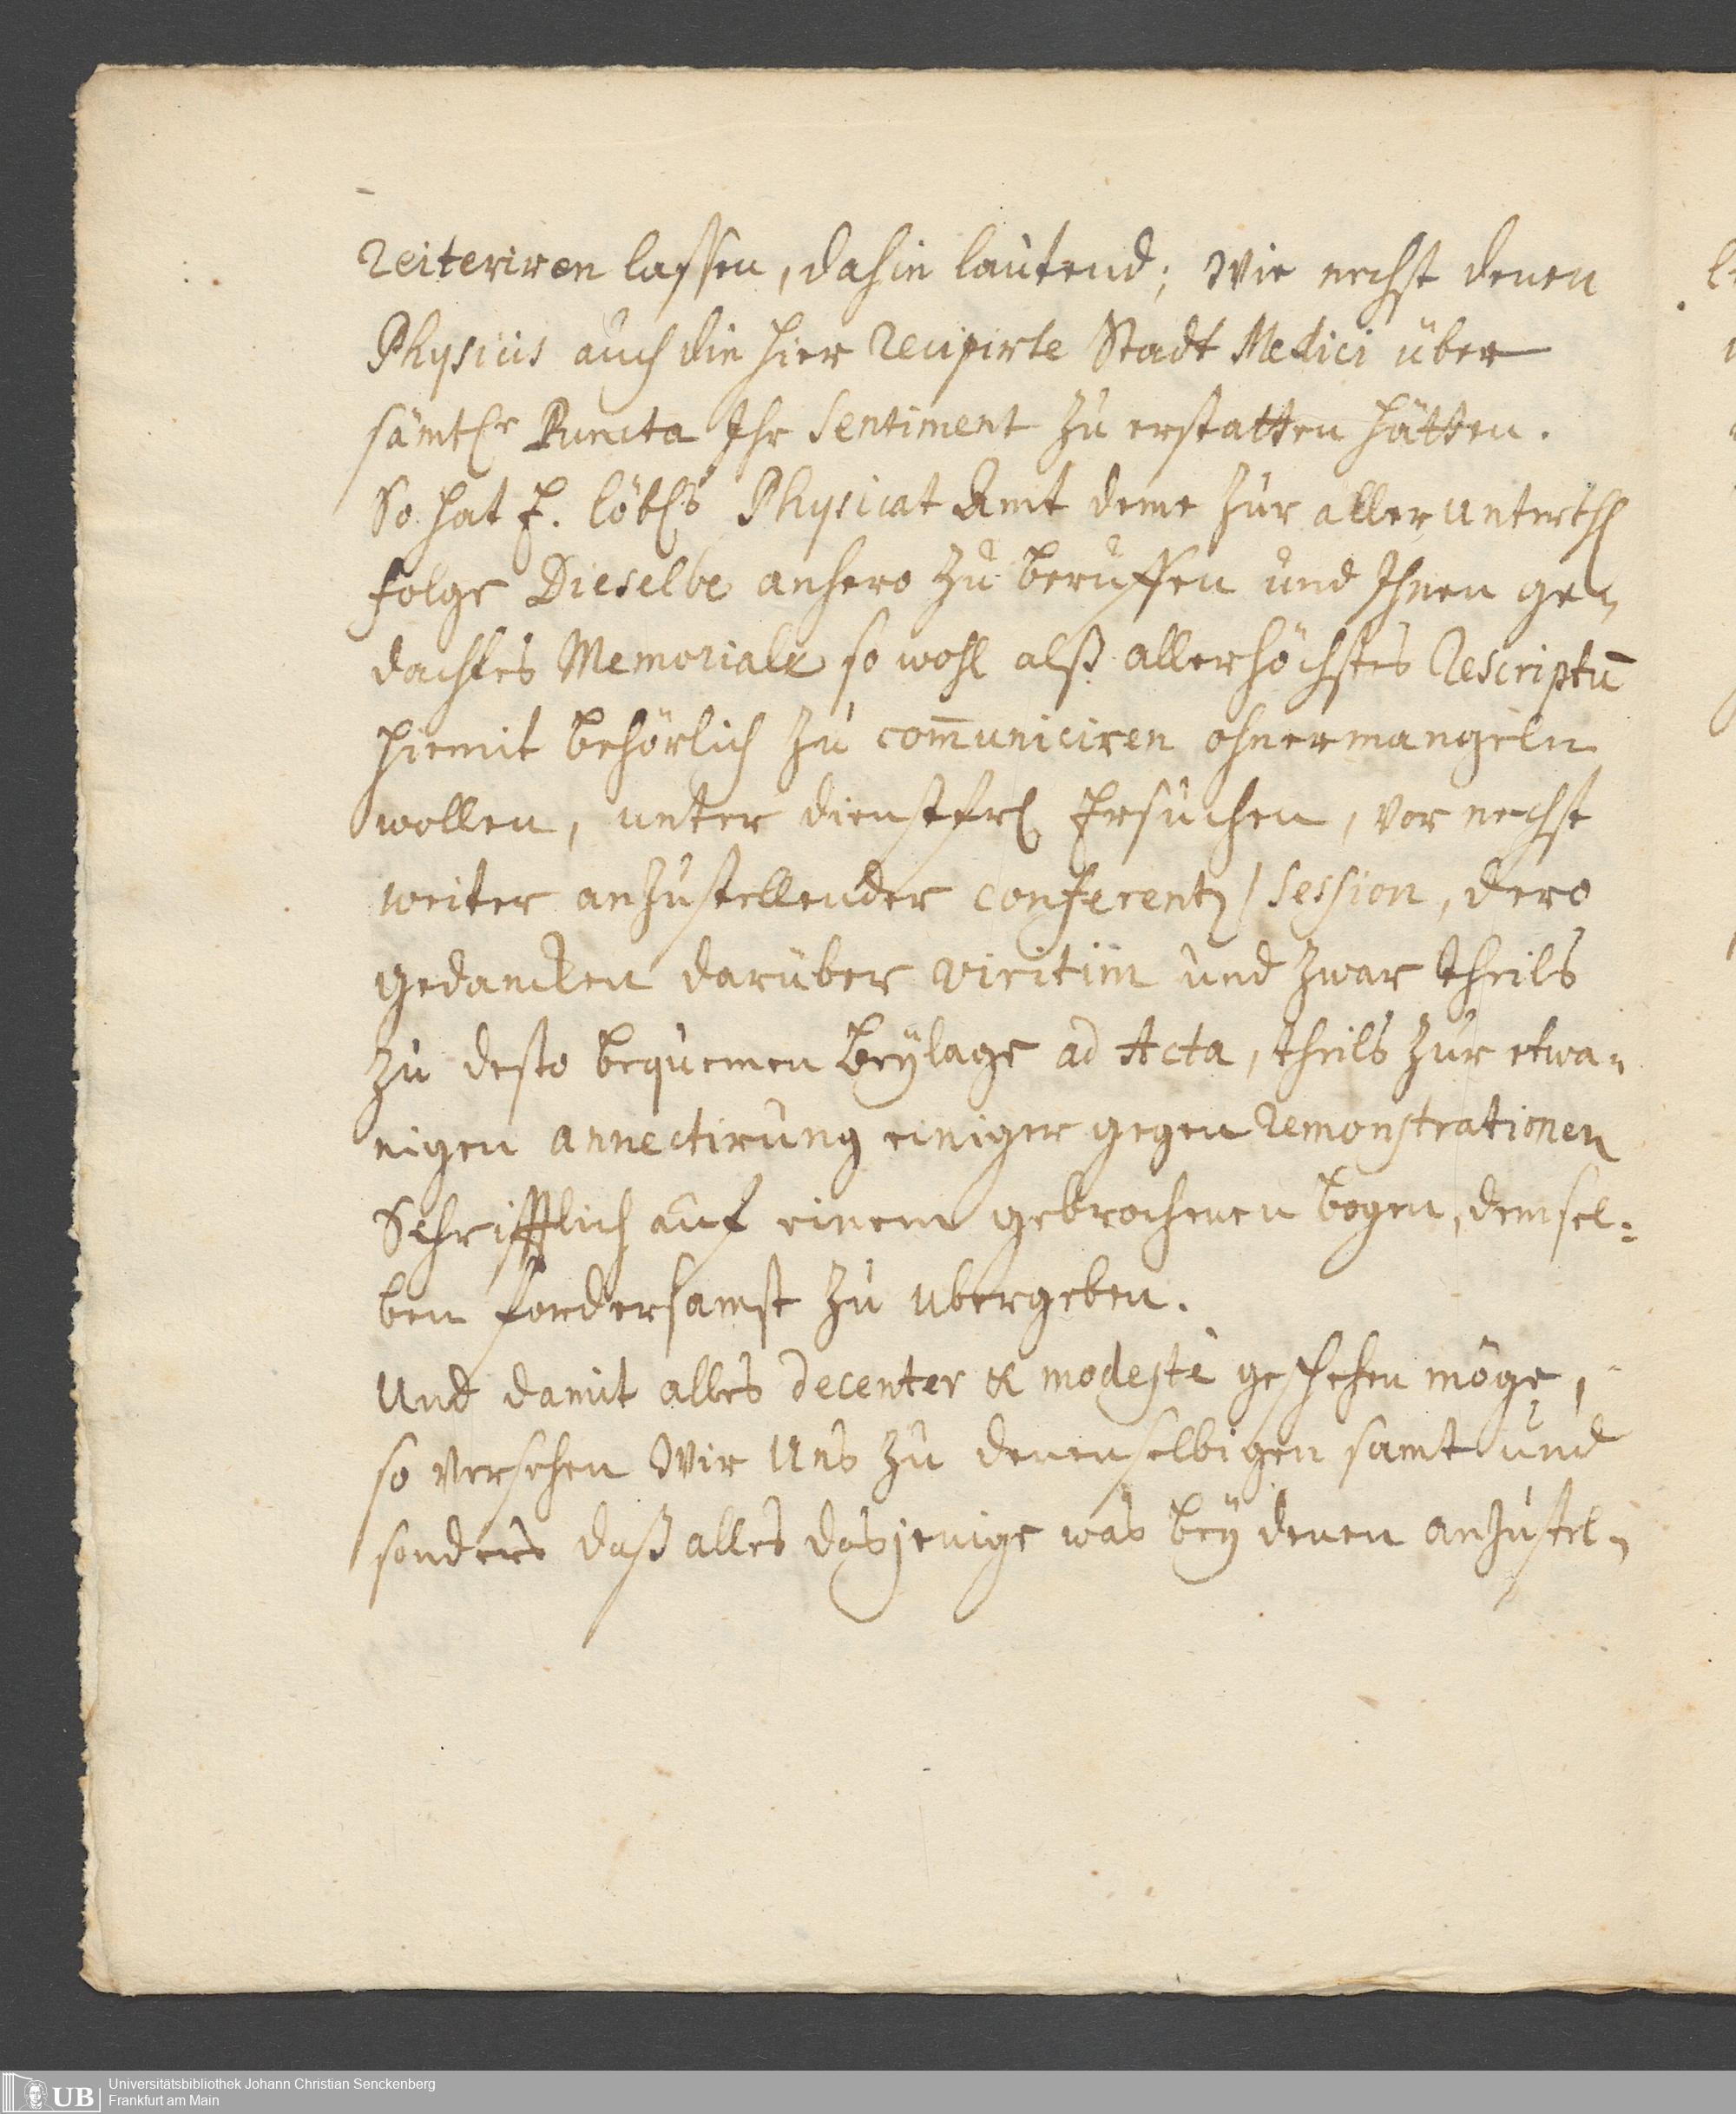 reiteriren lassen, dahin lautend; Wie nechst denen
Physicis auch die hier recipirte Stadt Medici über
sämtl. Puncta Ihr Sentiment zu erstatten hätten.
So hat E. löbl. Physicat Amt deme zur allerunterth.
folge Dieselbe anhero zu beruffen und Ihnen ge-
dachtes Memoriale so wohl alß allerhöchstes Rescriptū
hiemit behörlich zu com̅uniciren ohnermangeln
wollen, unter dienstfrl. Ersuchen, vor nechst
weiter anzustellender Conferentz / Session, dero
gedancken darüber viritim und zwar theils
zu desto bequemen Beylage ad Acta, theils zur etwa-
nigen annectirung einiger gegen remonstrationen
Schrifftlich auf einem gebrochenen bogen, demsel:
ben fordersamst zu ubergeben.
Und damit alles decenter & modestè geschehen möge,
so versehen Wir Uns zu denenselbigen samt und
sonders daß alles dasjenige was bey denen anzustel-
UB
Universitätsbibliothek Johann Christian Senckenberg
Frankfurt am Main